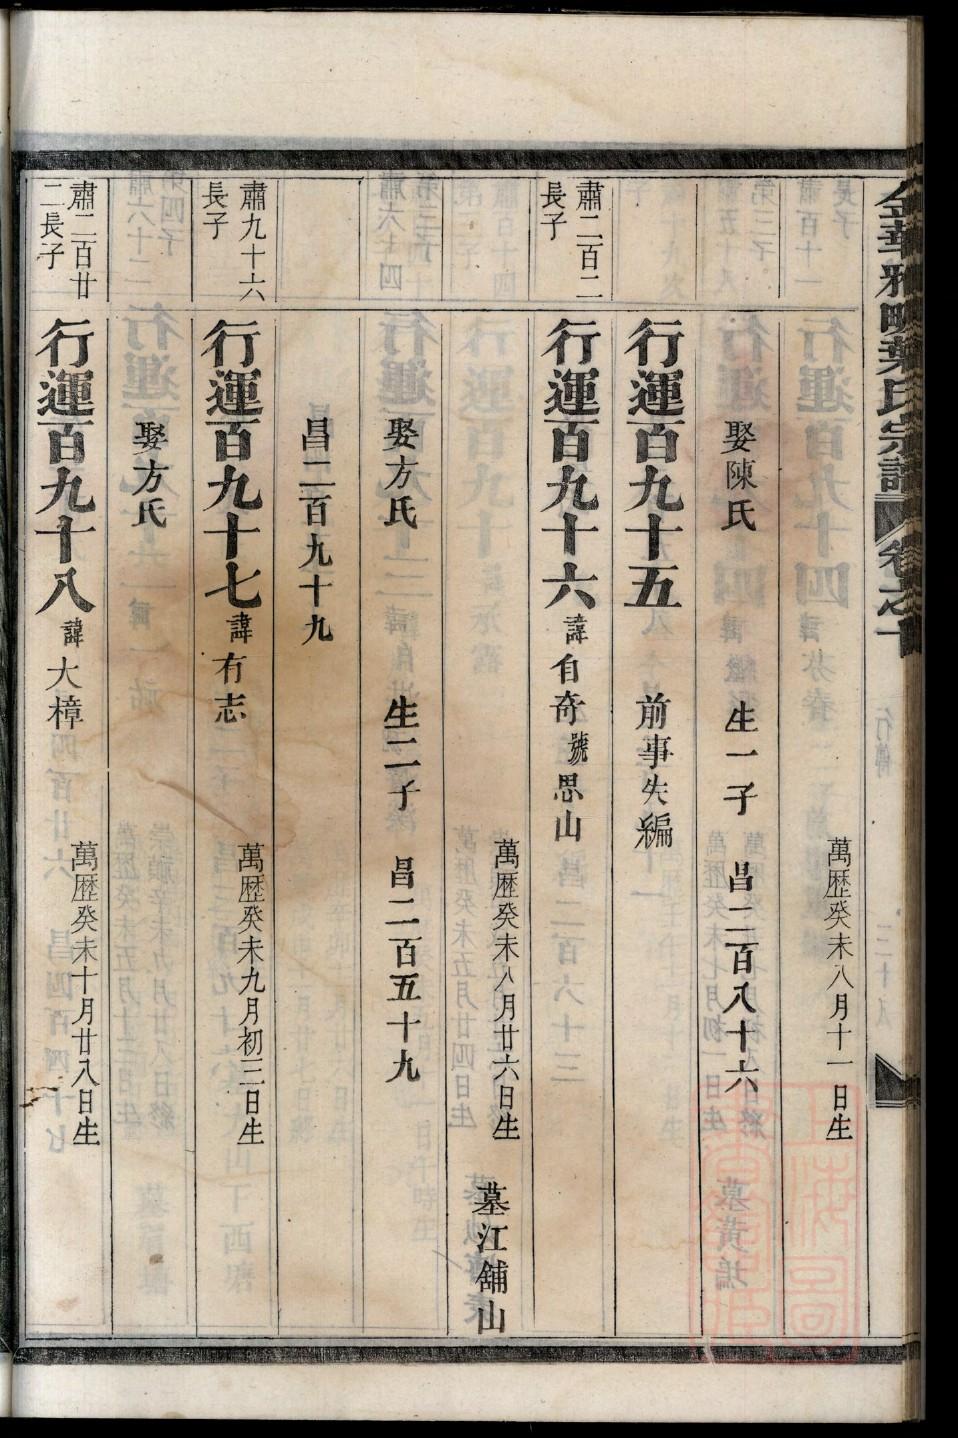 金華雅畈葉氏宗譜 卷之十
萬歷癸未八月十一日生
娶陳氏 生一子 昌二百八十六
行運百九十五 前事失編
肅二百二
長子
行運百九十六 諱自奇號思山
萬歷癸未八月廿六日生 墓江舖山
娶方氏 生二子 昌二百五十九
昌二百九十九
肅九十六
長子
行運百九十七 諱有志
萬歷癸未九月初三日生
娶方氏
肅二百廿
二長子
行運百九十八 諱大樟
萬歷癸未十月廿八日生